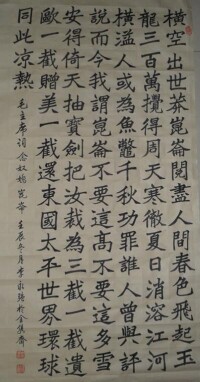 橫空出世莽崑崙閱盡人間春色飛起玉
龍三百萬攪得周天寒徹夏日消溶江河
橫溢人或為魚鱉千秋功罪誰人曾與評
說而今我謂崑崙不要這高不要這多雪
安得倚天抽寶劍把汝裁為三截一截遺
歐一截贈美一截還東國太平世界環球
同此涼熱
毛主席詞念奴嬌崑崙 壬辰冬月李